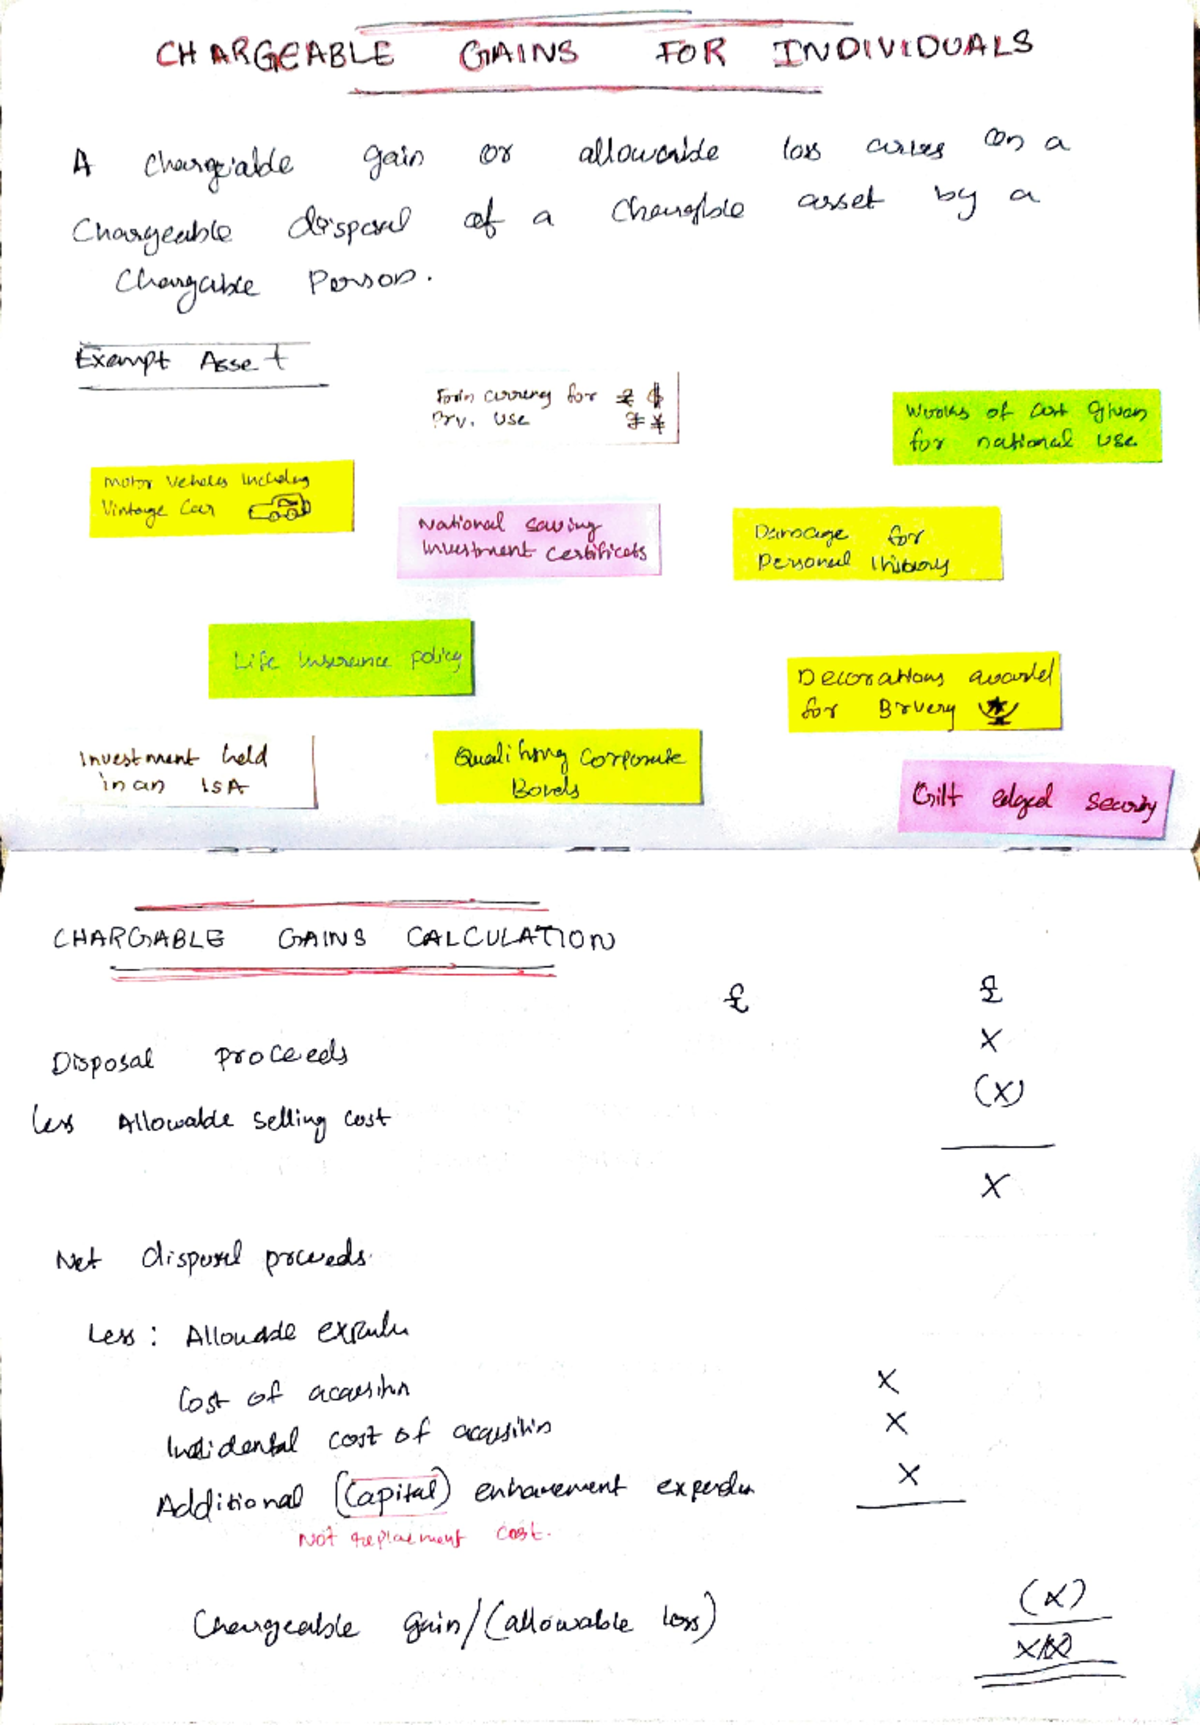 CHARGEABLE GAINS FOR INDIVIDUALS
A chargeable gain or allowable loss arises on a
Chargeable disposal of a chargeable asset by a
Chargable Person.
Exempt Asset
Forin currency for £ $
Prv. use ¥
Works of art given
for national use
Motor Vehcles Including
Vintage Car
National saving
Investment certificats
Damage for
Personal Injury
Life Insurance policy
Decorations awarded
for Brvery
Investment held
in an ISA
Qualifying Corporate
Bonds
Gilt edged security
CHARGABLE GAINS CALCULATION
£ £
Disposal proceeds X
Less Allowable selling cost (X)
X
Net disposal proceeds.
Less: Allowable
Cost of acquisition X
Incidental cost of acquisition X
Additional (capital) enhancement X
Not replacement cost.
(X)
Chargeable gain/(allowable loss)